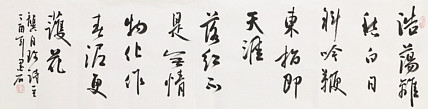 浩蕩離
愁白日
斜吟鞭
東指即
天涯
落紅不
是無情
物化作
春泥更
護花
龔自珍詩